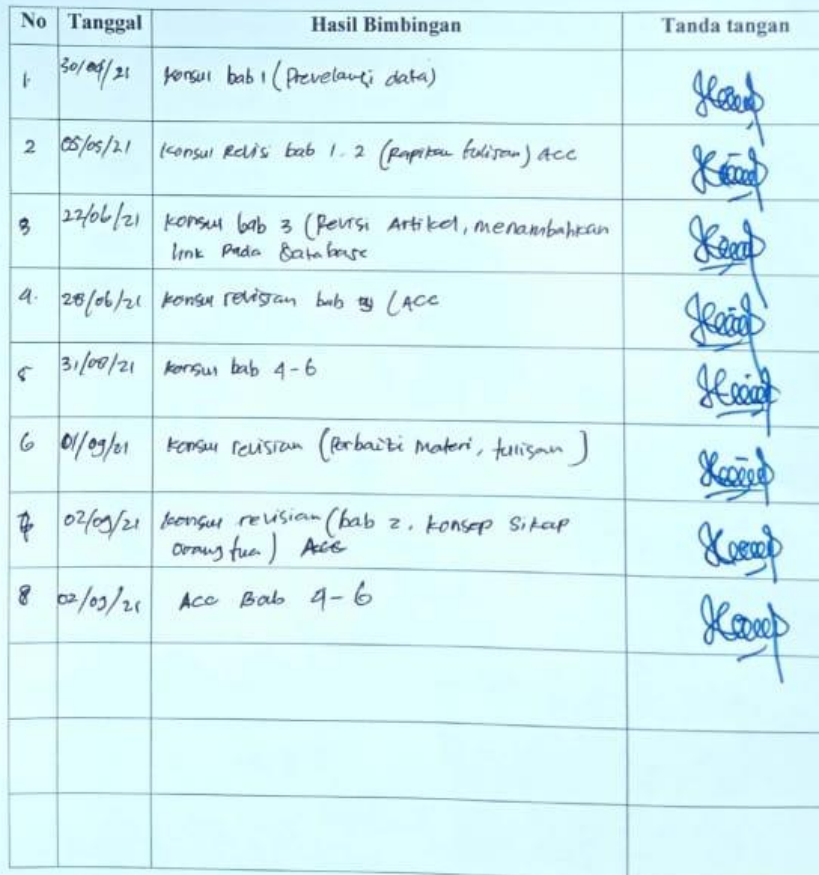 No Tanggal Hasil Bimbingan Tanda tangan
1. 30/04/21 Konsul bab 1 (Prevelansi data)
2 05/05/21 Konsul Revisi bab 1. 2 (Rapikan tulisan) ACC
3 22/06/21 Konsul bab 3 (Revisi Artikel, menambahkan
link Pada Database
4. 28/06/21 Konsul revisian bab (ACC
5 31/08/21 Konsul bab 4-6
6 01/09/21 Konsul revisian (Perbaiki Materi, tulisan)
7 02/09/21 Konsul revisian (bab 2. Konsep Sikap
orang tua) Acc
8 02/09/21 Acc Bab 4-6